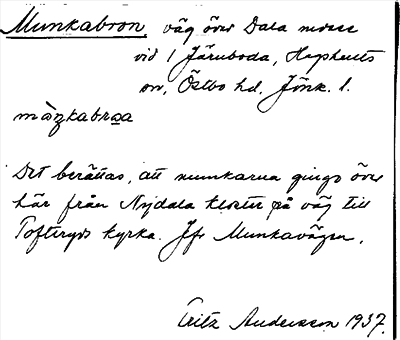 Munkabron, väg över Dala mosse
vid / Järnboda, Hagshults
sn, Östbo hd, Jönk. l.
Det berättas, att munkarna gingo över
här från Nydala kloster på väg till
Tofteryds kyrka. Jfr Munkavägen.
Fritz Andersson 1937.